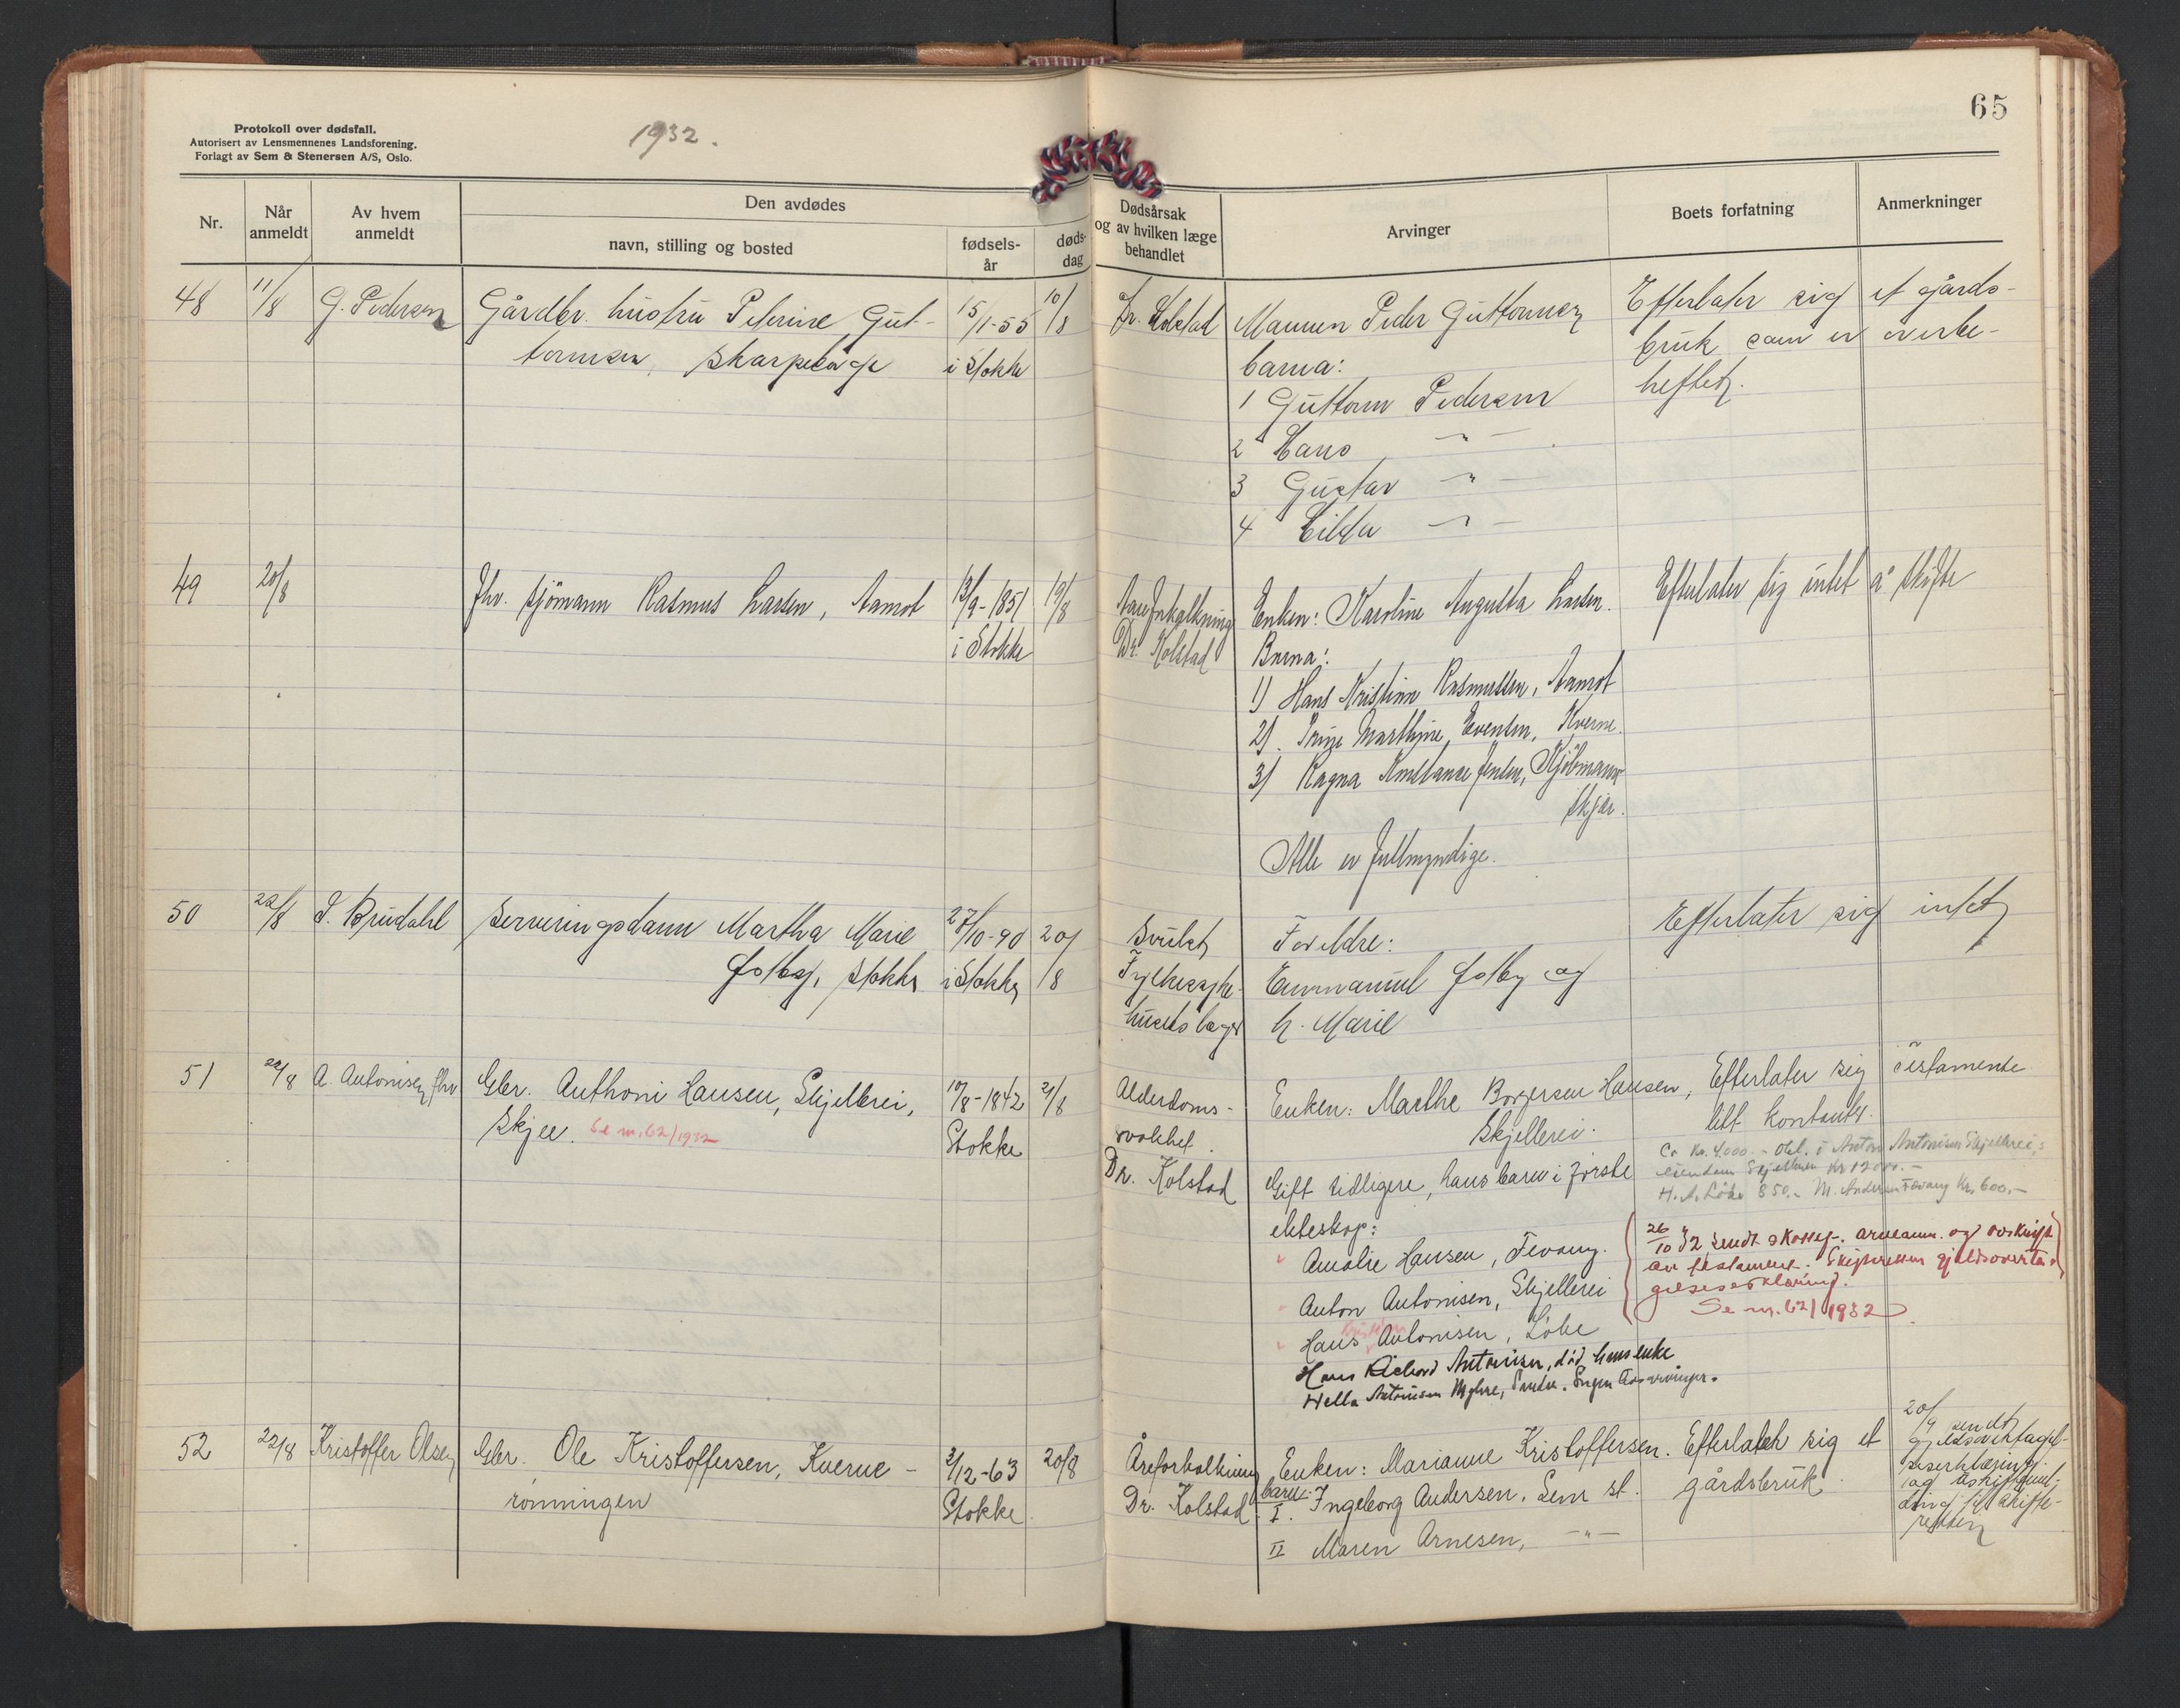 65
Protokoll over dødsfall.
Autorisert av Lensmennenes Landsforening.
Forlagt av Sem & Stenersen A/S, Oslo.
1932.
Nr.
Når anmeldt
Av hvem anmeldt
Den avdødes
navn, stilling og bosted
fødsels-år
døds-dag
Dødsårsak og av hvilken læge behandlet
Arvinger
Boets forfatning
Anmerkninger
48 11/8 G. Pedersen Gårdbr. hustru Peterine Gut- 15/1-55 10/8 Dr. Kolstad Mannen Peder Guttormsen Efterlater sig et gårds-
tormsen, i Stokke barna: bruk som er overbe-
1 Guttorm Pedersen heftet.
2 Hans -"-
3 Gustav -"-
4 Hilda -"-
49 20/8 Fhv. sjömann Rasmus Larsen, Aamot 13/9-1851 19/8 Aareforkalkning Enken: Karoline Augusta Larsen. Efterlater sig intet å skifte
i Stokke Dr. Kolstad Barna:
1) Hans Kristian Rasmussen, Aamot
2). Marthine Evensen, Kverne.
3) Ragna Konstanse Jensen, Kjöbmann-
skjær.
Alle er fullmyndige.
50 22/8 Serveringsdame Martha Marie 27/10-90 20/8 Svulst Foreldre: Efterlater sig intet
Stokke i Stokke Fylkessyke- Emmanuel og
husets læger h. Marie
51 22/8 A. Antonisen fhv Gbr. Anthoni Hansen, Skjellerei, 10/8-1842 21/8 Alderdoms- Enken: Marthe Borgersen Hansen, Efterlater sig testamente
Skjee. Se nr. 62/1932 Stokke svakhet. Skjellerei. litt kontanter.
Dr. Kolstad Gift tidligere, hans barn i første Ca kr. 4.000.- Obl. i Anton Antonisen Skjellerei,s
ekteskap: eiendom Skjellerei kr 1200.-
H. A. Løke 850.- M. Andersen Fevang kr. 600.-
Amalie Hansen, Fevang. 26/10 32 sendt og avskrift
Anton Antonisen, Skjellerei av testament. Skifteretten gjeldsoverta-
gelseserklæring.
Hans Antonisen, Løke Se nr. 62/1932
Hans Rickard Antonisen, død, hans enke
Hella Antonisen
52 22/8 Kristoffer Olsen Gbr. Ole Kristoffersen, Kverne- 2/12-63 20/8 Åreforkalkning Enken: Marianne Kristoffersen. Efterlater sig et 20/9 sendt
rønningen Stokke Dr. Kolstad barn: I. Ingeborg Andersen, Sem st. gårdsbruk gjeldsovertagel-
II Maren Arnesen, -"- seserklæring
og
skifte-
retten